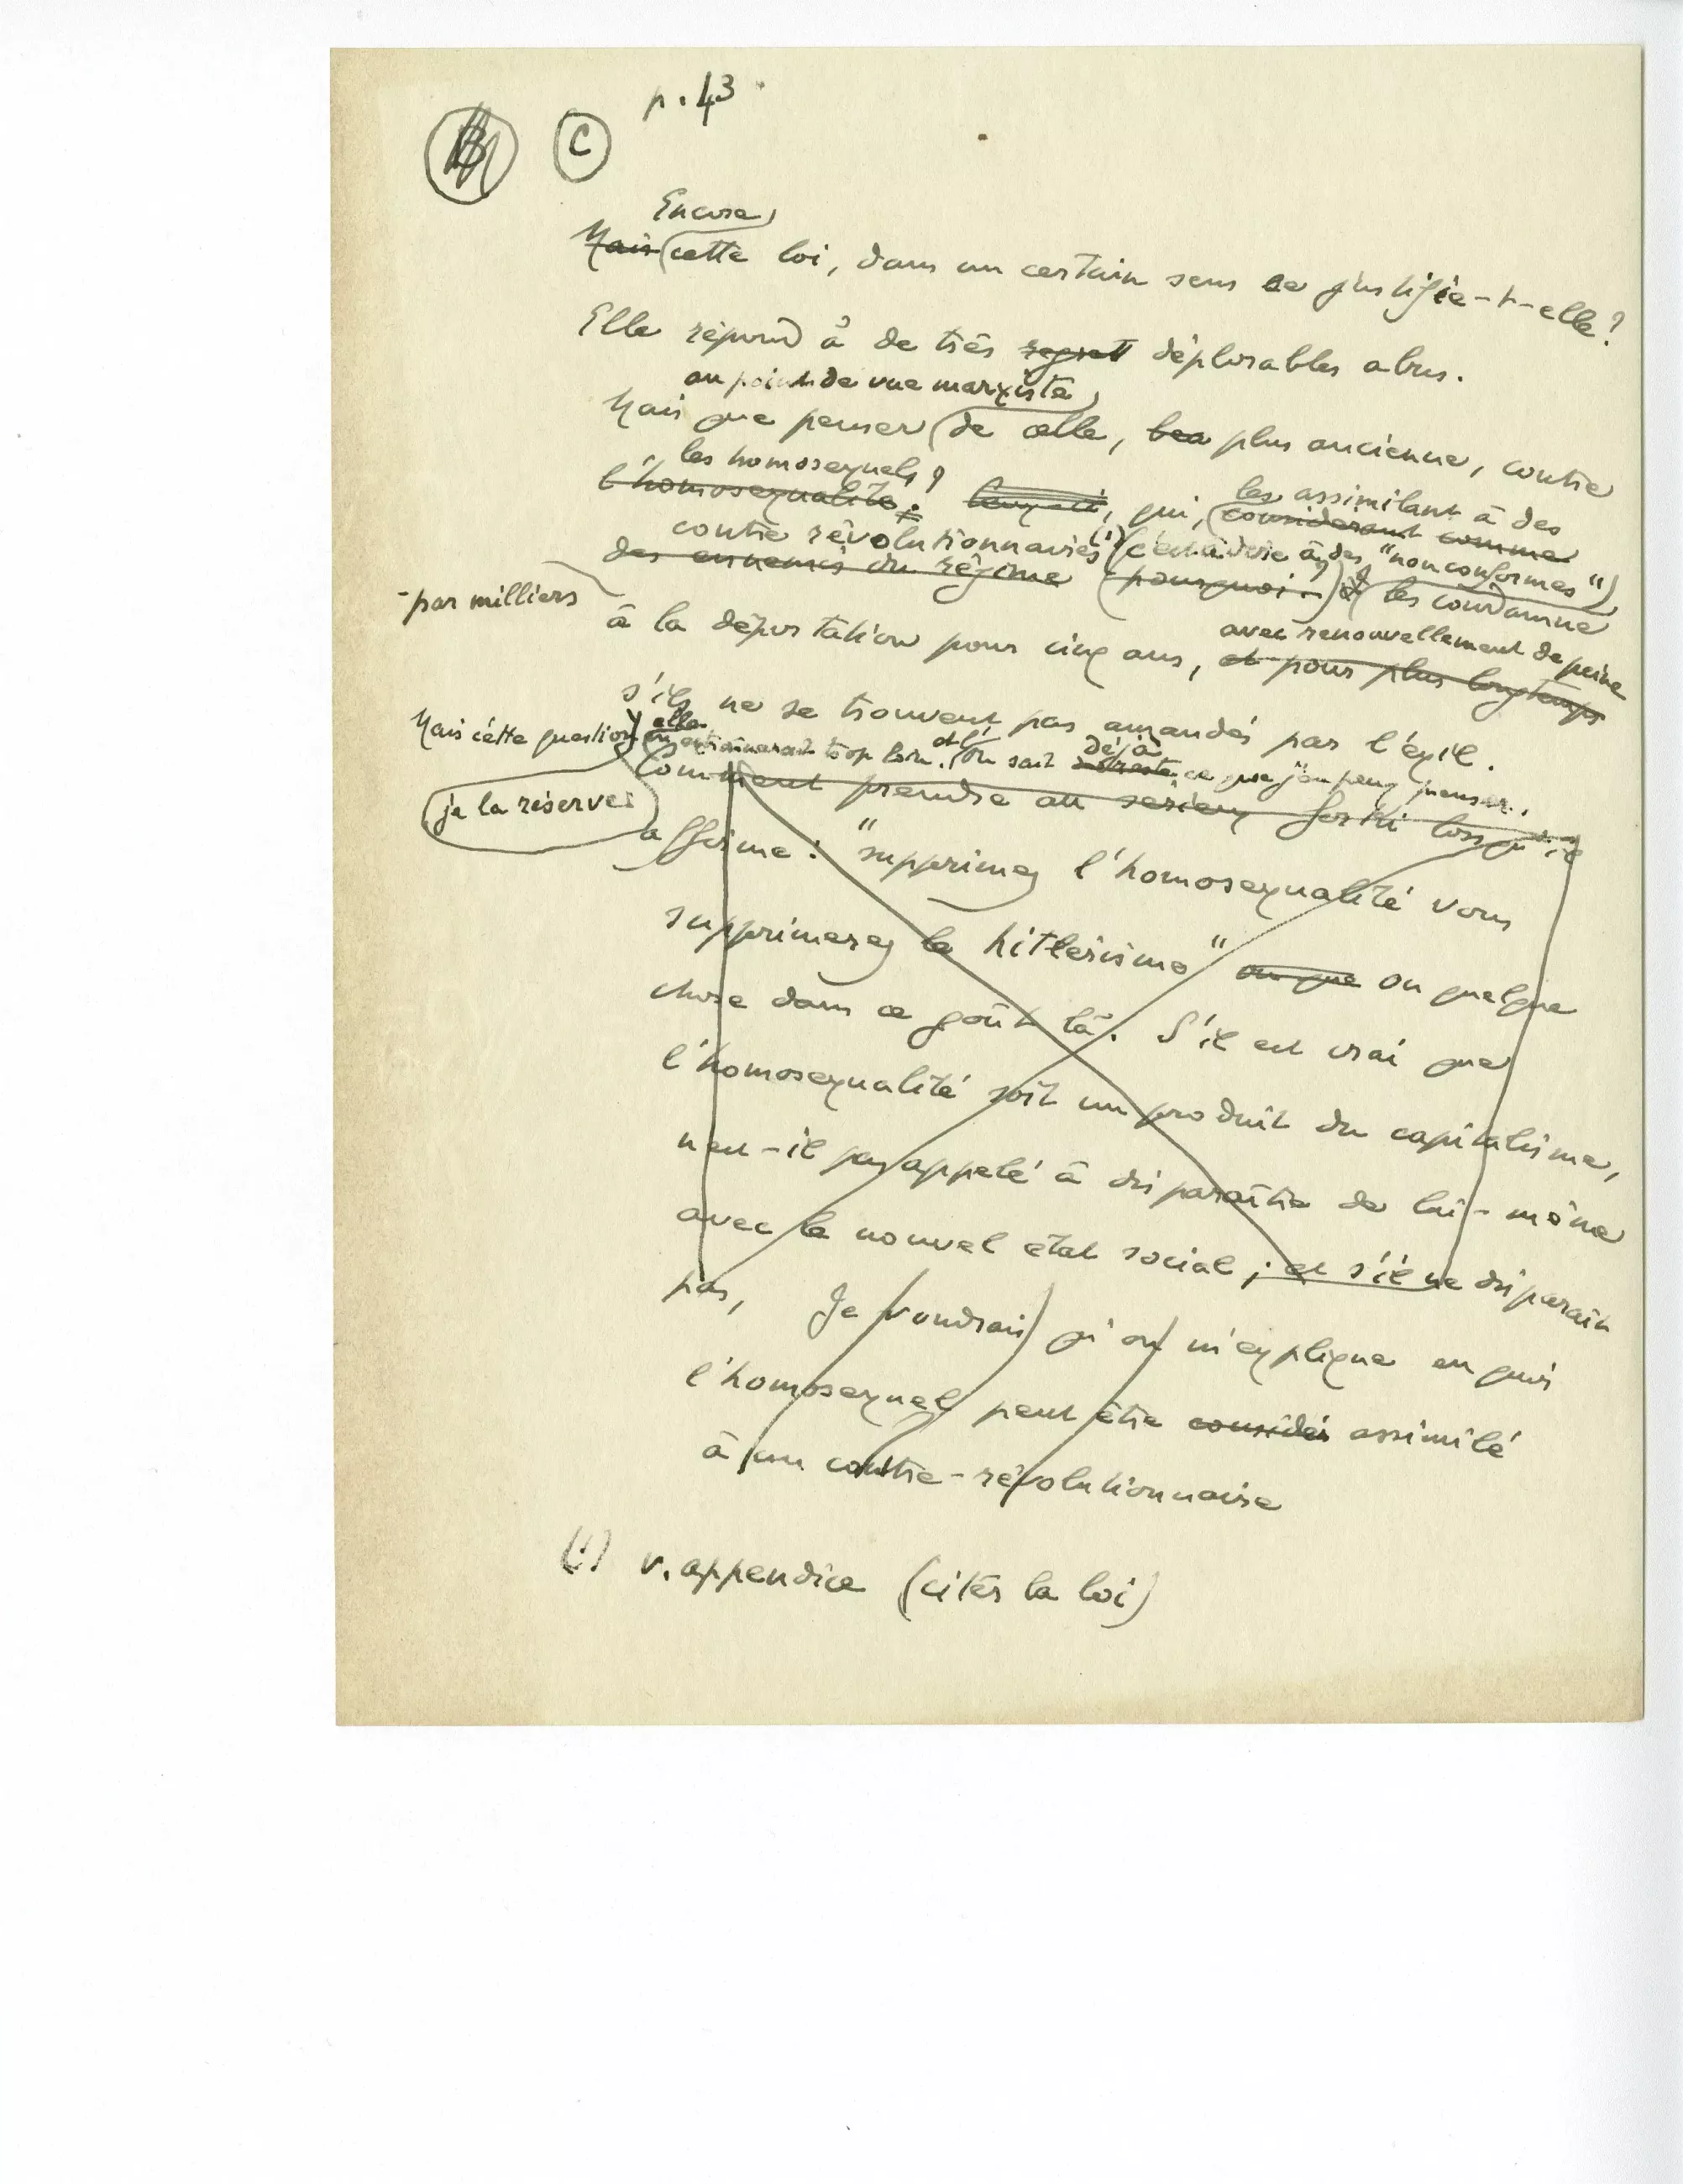 p. 43
B C
Encore
Mais cette loi, dans un certain sens se justifie-t-elle?
Elle répond à de très regrett déplorables abus.
au point de vue marxiste
Mais que penser de celle, bea plus ancienne, contre
les homosexuels?
les assimilant à des
l'homosexualité? qui, considérant comme
contre révolutionnaires (1) (c'est à dire à des "nonconformes")
des ennemis du régime (pourquoi?) les condamne
- par milliers
à la déportation pour cinq ans, et pour plus longtemps
avec renouvellement de peine
s'ils ne se trouvent pas amandés par l'exil.
Mais cette question elle entrainerait trop loin. et On sait déjà ce que j'en peux penser.
je la réserve
Comment prendre au serieux Gorki lorsqu'il
affirme: "supprimez l'homosexualité vous
supprimerez le hitlerisme" ou que ou quelque
chose dans ce goût là. S'il est vrai que
l'homosexualité soit un produit du capitalisme,
n'est-il pas appelé à disparaître de lui-même
avec le nouvel état social; et s'il ne disparait
pas, Je voudrais qu'on m'explique en quoi
l'homosexuel peut être considér assimilé
à un contre-révolutionnaire
(1) v. appendice (citer la loi)